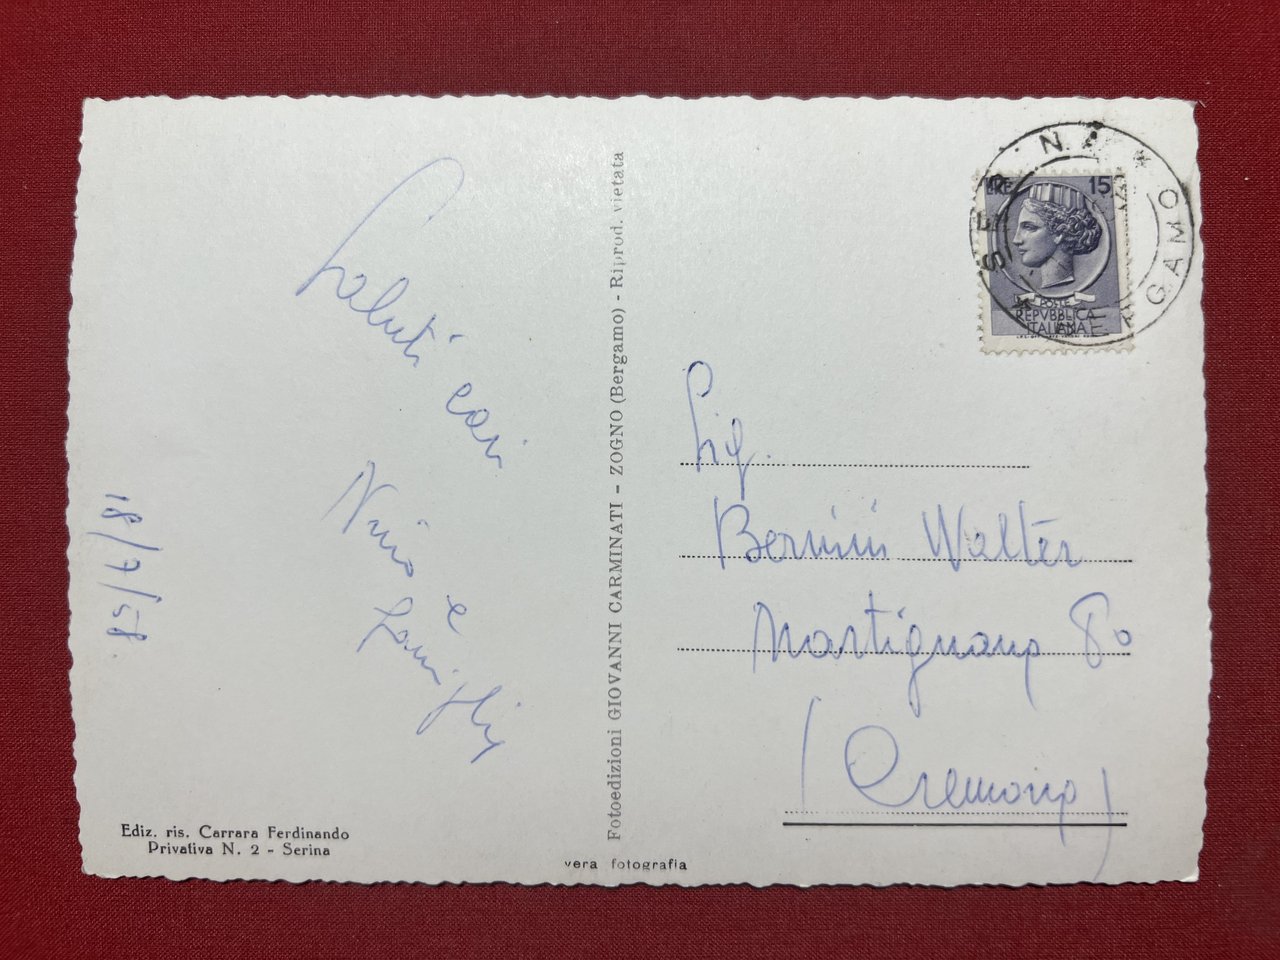 Saluti cari
Nino e
famiglia
18/7/58
Ediz. ris. Carrara Ferdinando
Privativa N. 2 - Serina
Fotoedizioni GIOVANNI CARMINATI - ZOGNO (Bergamo) - Riprod. vietata
vera fotografia
LIRE 15
POSTE
REPVBBLICA
ITALIANA
BERGAMO
Sig.
Bernini Walter
Martignana Po
(Cremona)